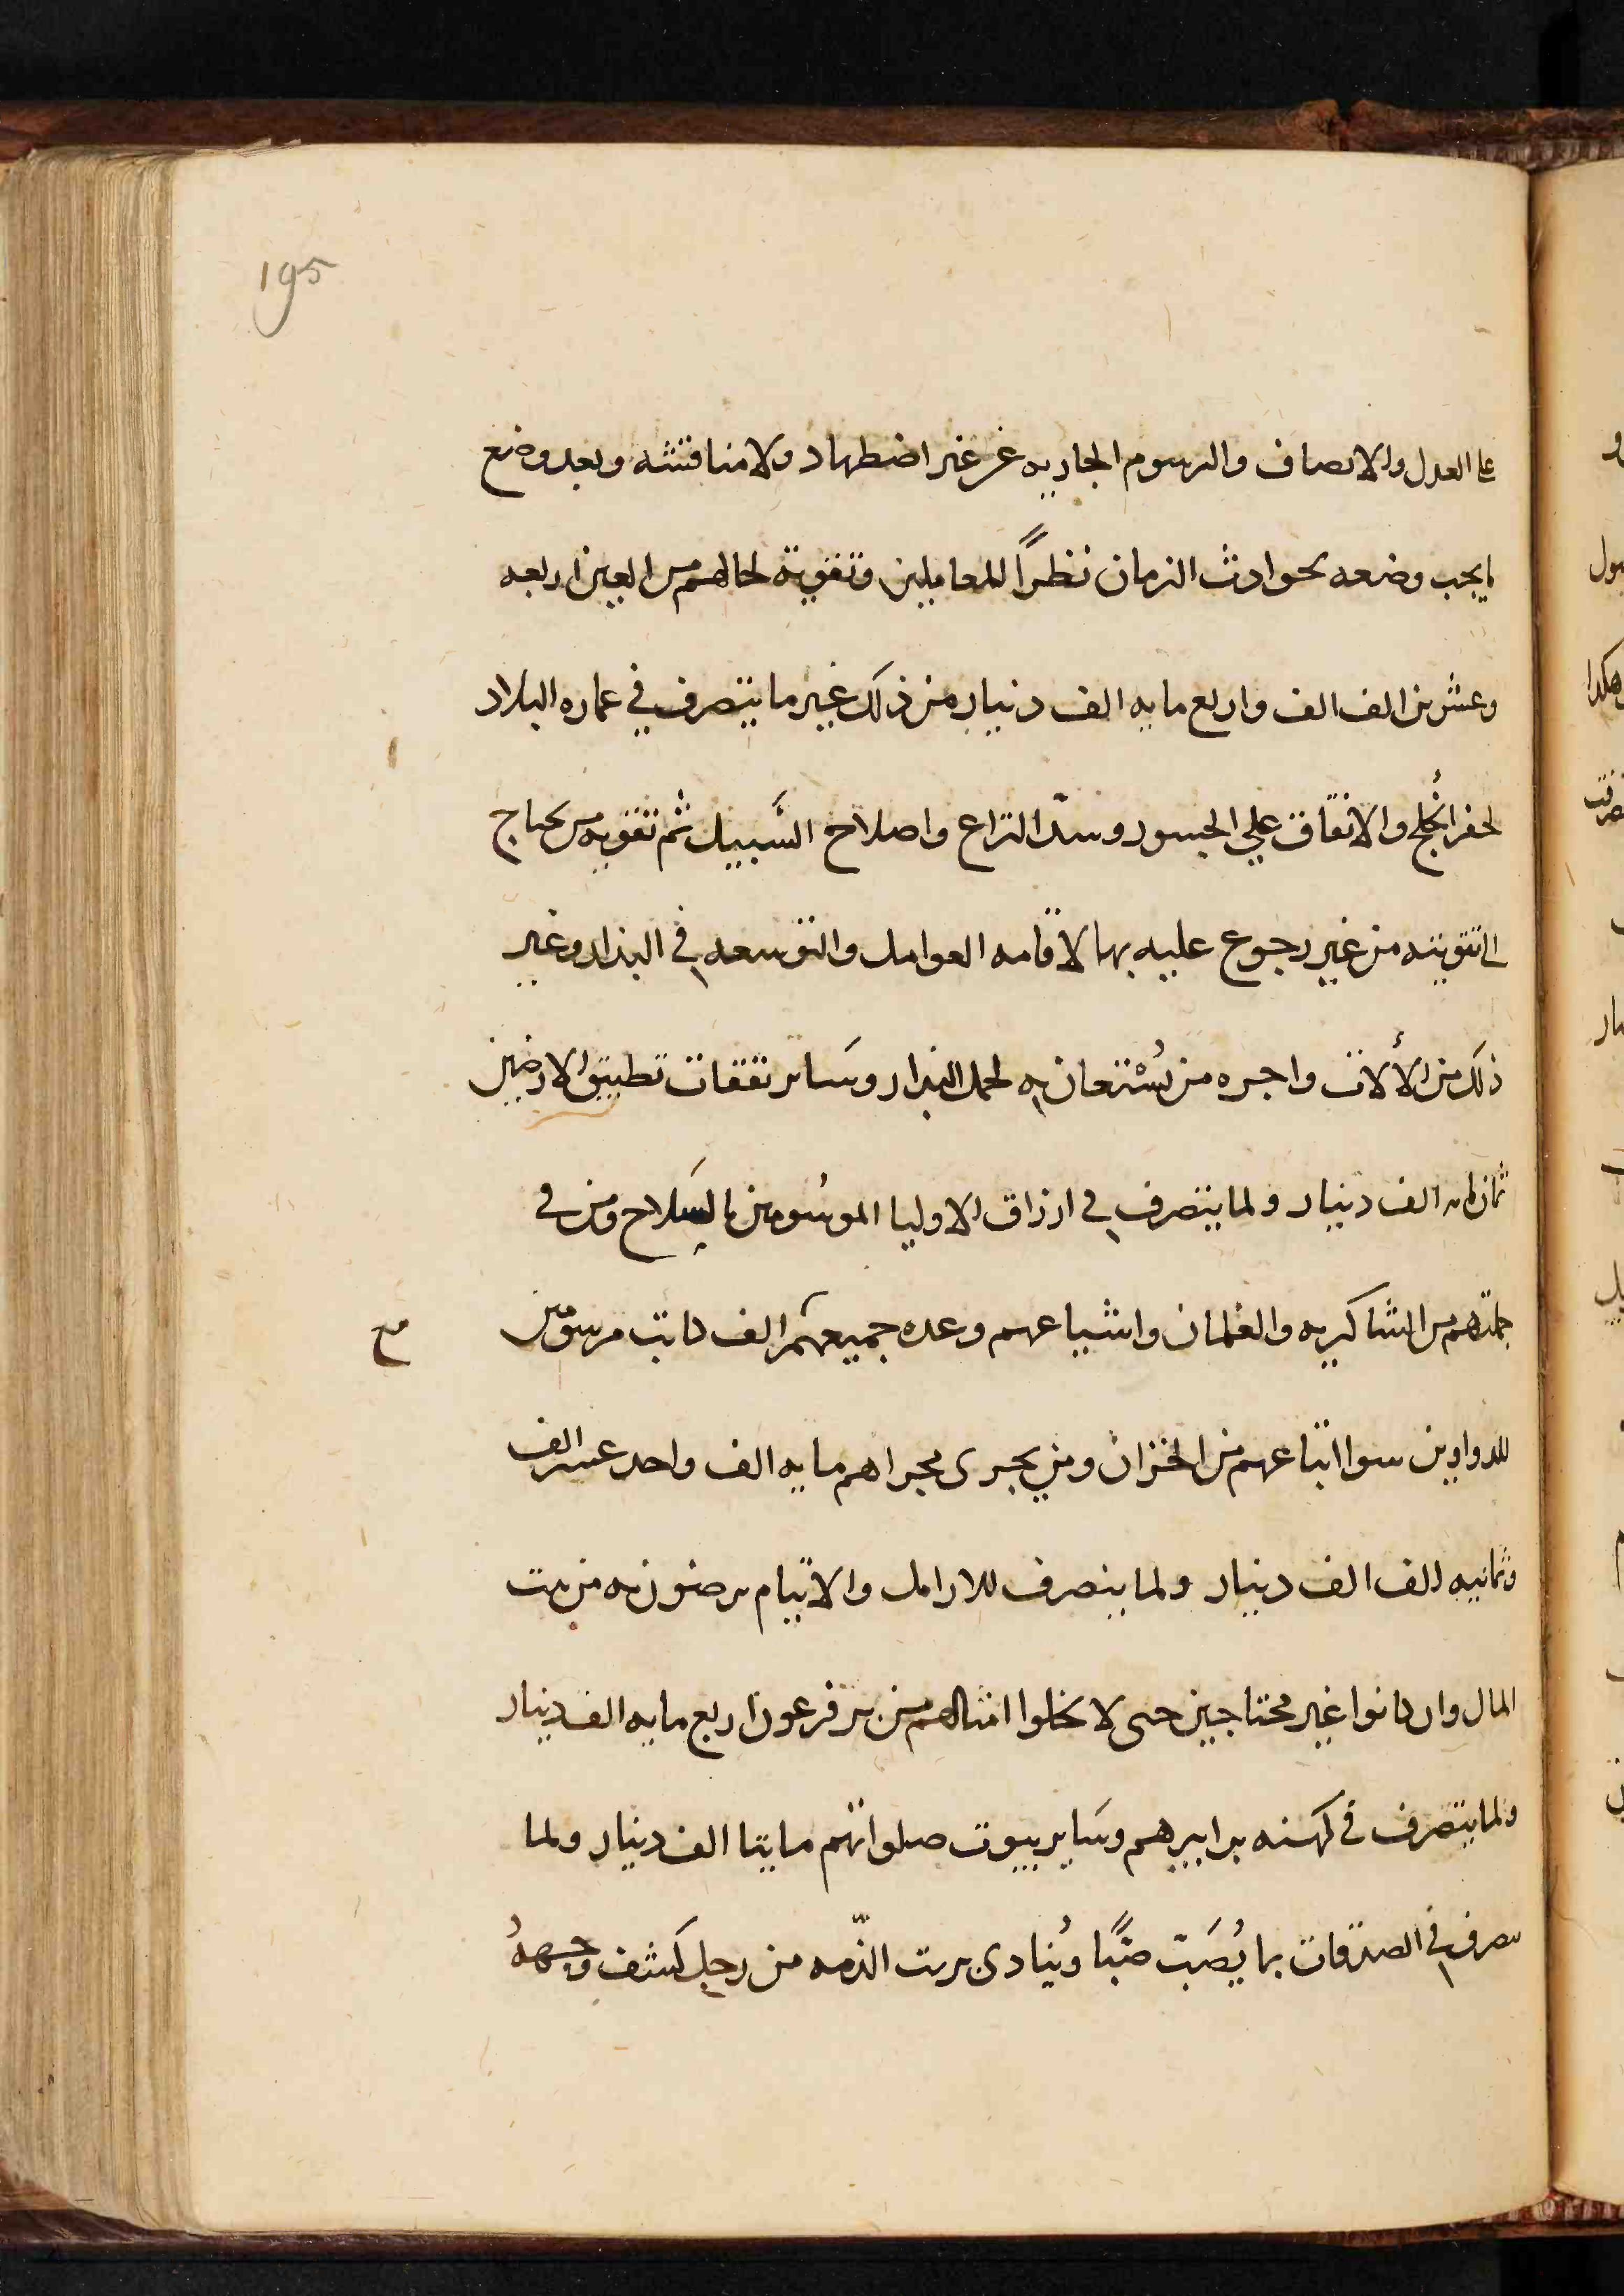 195
على العدل والانصاف والرسوم الجاريه عن غير اضطهاد ولا مناقشه وبعد وضع
ما يجب وضعه لحوادث الزمان نظرًا للمعاملين وتقوية لحالهم من العين اربعه
وعشرين الف الف واربع مايه الف دينار من ذلك غير ما يتصرف في عماره البلاد
لحفر الخُلج والانفاق علي الجسور وسدّ التراع واصلاح السَّبيل ثم تقويه من يحتاج
الى تقويته من غير رجوع عليه بها لاقامه العوامل والتوسعه في البذار وغير
ذلك من الألات واجره من يُسْتعان به لحمل البذار وسَاير نفقات تطبيق الارضين
ثمان مايه الف دينار ولما يتصرف في ارزاق الاوليا الموسُومين بالسَلاح ومن في
جملتهم من الشاكريه والغلمان واشياعهم وعده جميعهم الف كاتب مرسومين
مع
للدواوين سوا اتباعهم من الخزان ومن يجرى مجراهم مايه الف واحد عشر الف
وثمانيه الف الف دينار ولما ينصرف للارامل والايتام يرضون به من بيت
المال وان كانوا غير محتاجين حتى لا يخلوا امثالهم من بر فرعون اربع مايه الف دينار
ولما يتصرف في كهنه برابيهم وسَاير بيوت صلواتهم مايتا الف دينار ولما
يصرف في الصدقات بما يُصَبّ صبًّا ويُنادى بريت الذّمه من رجل كشف وجههُ